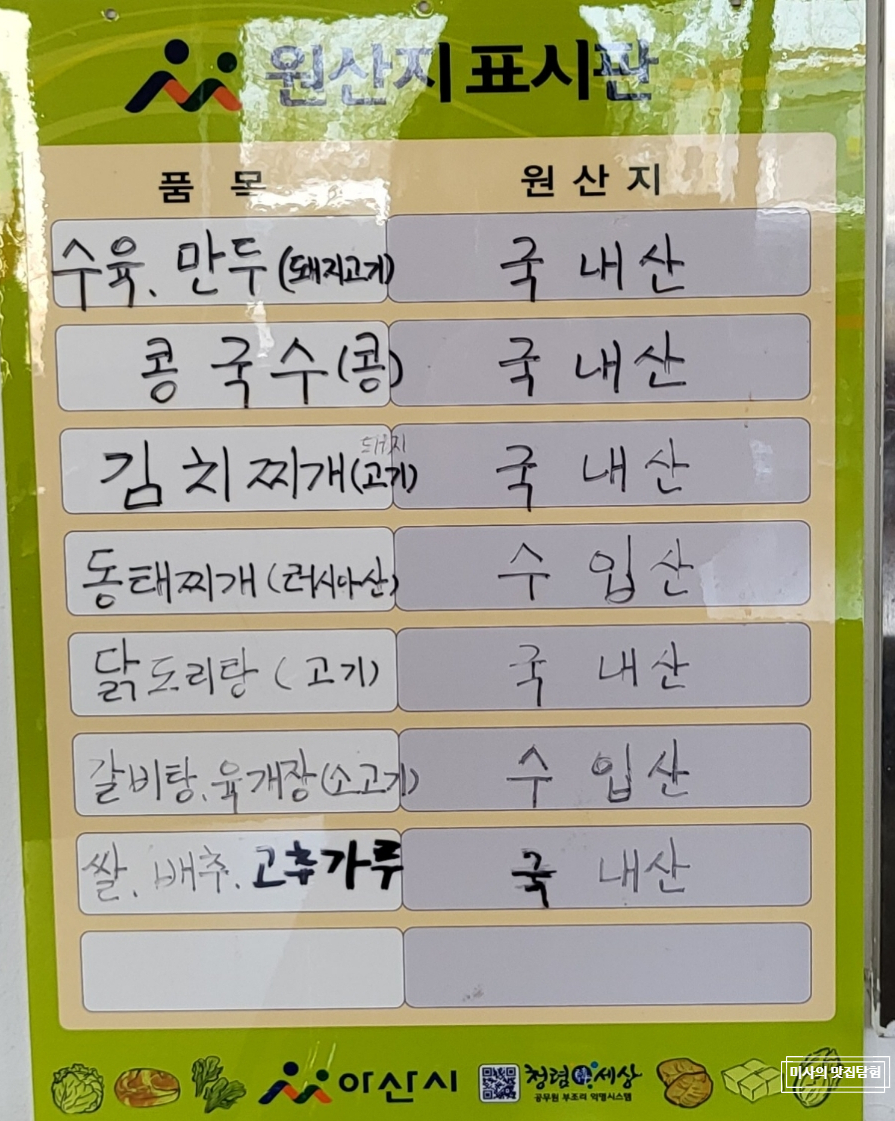 원산지표시판
품 목 원 산 지
수육. 만두(돼지고기) 국 내 산
콩 국 수(콩) 국 내 산
돼지
김 치 찌개(고기) 국 내 산
동태찌개(러시아산) 수 입 산
닭도리탕 (고기) 국 내 산
갈비탕. 육개장(소고기) 수 입 산
쌀. 배추. 고추가루 국 내산
아산시 청렴 세상
공무원 부조리 익명시스템
미사의 맛집탐험